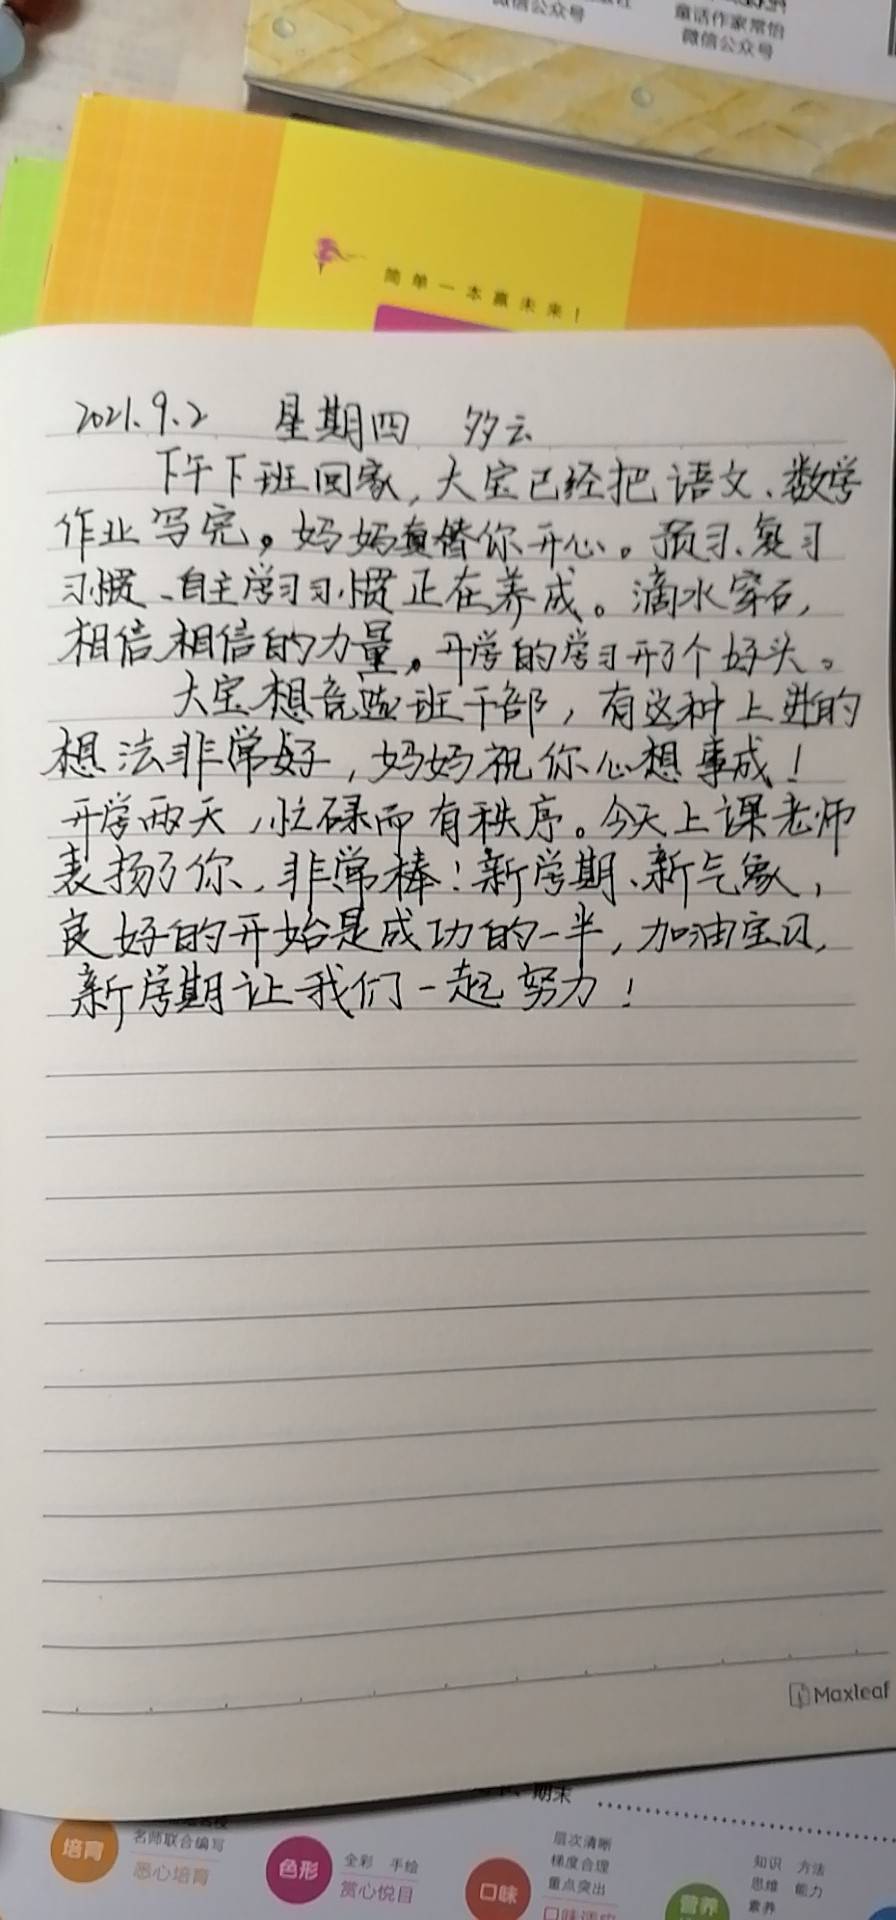 童话作家常怡
微信公众号
微信公众号
简单一本赢未来!
2021.9.2 星期四 多云
下午下班回家,大宝已经把语文、数学
作业写完。妈妈真替你开心。预习、复习
习惯、自主学习习惯正在养成。滴水穿石,
相信相信的力量。开学的学习开了个好头。
大宝想竞选班干部,有这种上进的
想法非常好,妈妈祝你心想事成!
开学两天,忙碌而有秩序。今天上课老师
表扬了你,非常棒!新学期、新气象,
良好的开始是成功的一半,加油宝贝,
新学期让我们一起努力!
Maxleaf
期末
培育
名师联合编写
悉心培育
色形
全彩 手绘
赏心悦目
口味
层次清晰
梯度合理
重点突出
营养
知识 方法
思维 能力
素养